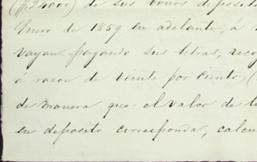 ($24000) de sus bonos deposita
Enero de 1859 en adelante, á
vayan pagando sus letras, reco
á razon de veinte por ciento, (
de manera que el valor de l
en deposito corresponda, calcu